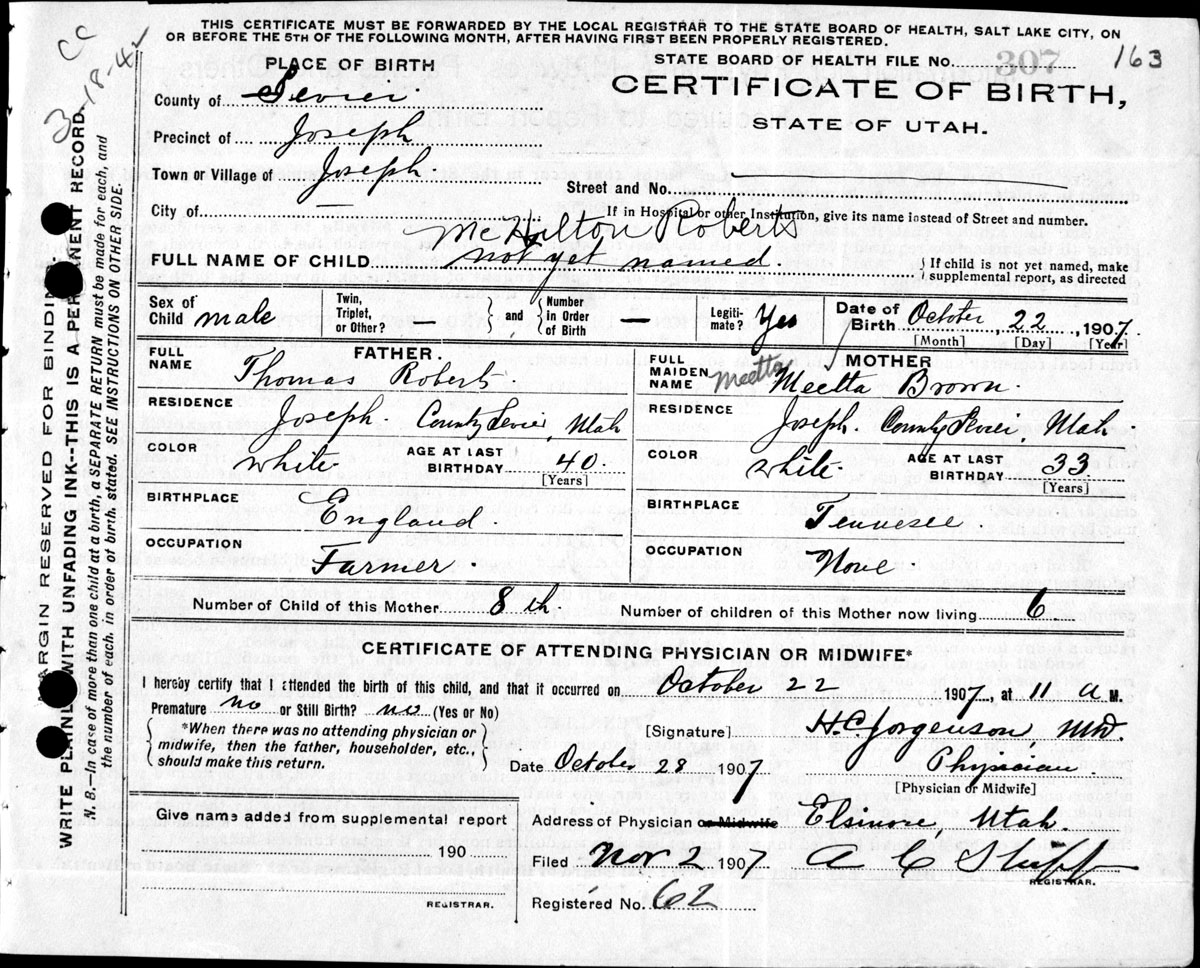 THIS CERTIFICATE MUST BE FORWARDED BY THE LOCAL REGISTRAR TO THE STATE BOARD OF HEALTH, SALT LAKE CITY, ON
OR BEFORE THE 5TH OF THE FOLLOWING MONTH, AFTER HAVING FIRST BEEN PROPERLY REGISTERED.
STATE BOARD OF HEALTH FILE NO. 307 163
CERTIFICATE OF BIRTH,
STATE OF UTAH.
PLACE OF BIRTH
County of Sevier.
Precinct of Joseph
Town or Village of Joseph.
Street and No.
City of —
If in Hospital or other Institution, give its name instead of Street and number.
Mc Hilton Roberts
FULL NAME OF CHILD not yet named. { If child is not yet named, make
supplemental report, as directed
Sex of Child male
Twin, Triplet, or Other? —
and { Number in Order of Birth —
Legitimate? Yes
Date of Birth October, 22, 1907.
[Month] [Day] [Year]
FATHER.
FULL NAME Thomas Roberts
RESIDENCE Joseph. County Sevier, Utah
COLOR white. AGE AT LAST BIRTHDAY 40.
[Years]
BIRTHPLACE England.
OCCUPATION Farmer.
MOTHER
FULL MAIDEN NAME Meetta Meetta Brown.
RESIDENCE Joseph. County Sevier, Utah.
COLOR white. AGE AT LAST BIRTHDAY 33
[Years]
BIRTHPLACE Tennesee
OCCUPATION None
Number of Child of this Mother 8 th. Number of children of this Mother now living 6
CERTIFICATE OF ATTENDING PHYSICIAN OR MIDWIFE*
I hereby certify that I attended the birth of this child, and that it occurred on October 22 1907, at 11 a M.
Premature no or Still Birth? no (Yes or No)
{ *When there was no attending physician or
midwife, then the father, householder, etc.,
should make this return. }
[Signature] H.C. Jorgenson, MD.
Date October 28 1907 Physician.
[Physician or Midwife]
Give name added from supplemental report
190
REGISTRAR.
Address of Physician or Midwife Elsinore, Utah.
Filed Nov 2 1907 A C
REGISTRAR.
Registered No. 62
MARGIN RESERVED FOR BINDING.
WRITE PLAINLY WITH UNFADING INK--THIS IS A PERMANENT RECORD.
N. B.—In case of more than one child at a birth, a SEPARATE RETURN must be made for each, and
the number of each, in order of birth, stated. SEE INSTRUCTIONS ON OTHER SIDE.